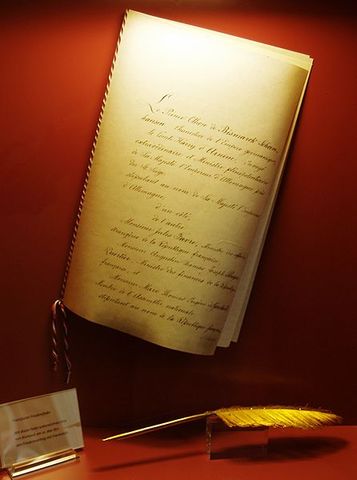 Le Prince Othon de Bismarck-Schoen-
hausen, Chancelier de l'Empire germanique,
le Comte Harry d'Arnim, Envoyé
extraordinaire et Ministre plénipotentiaire
de Sa Majesté l'Empereur d'Allemagne près
du St Siège,
stipulant au nom de Sa Majesté l'Empereur
d'Allemagne,
d'un côté,
de l'autre
Monsieur Jules Favre, Ministre des affaires
étrangères de la République française,
Monsieur Augustin Thomas Joseph Pouyer-
Quertier, Ministre des finances de la République
française, et
Monsieur Marc Thomas Eugène de Goulard,
Membre de l'Assemblée nationale
stipulant au nom de la République française